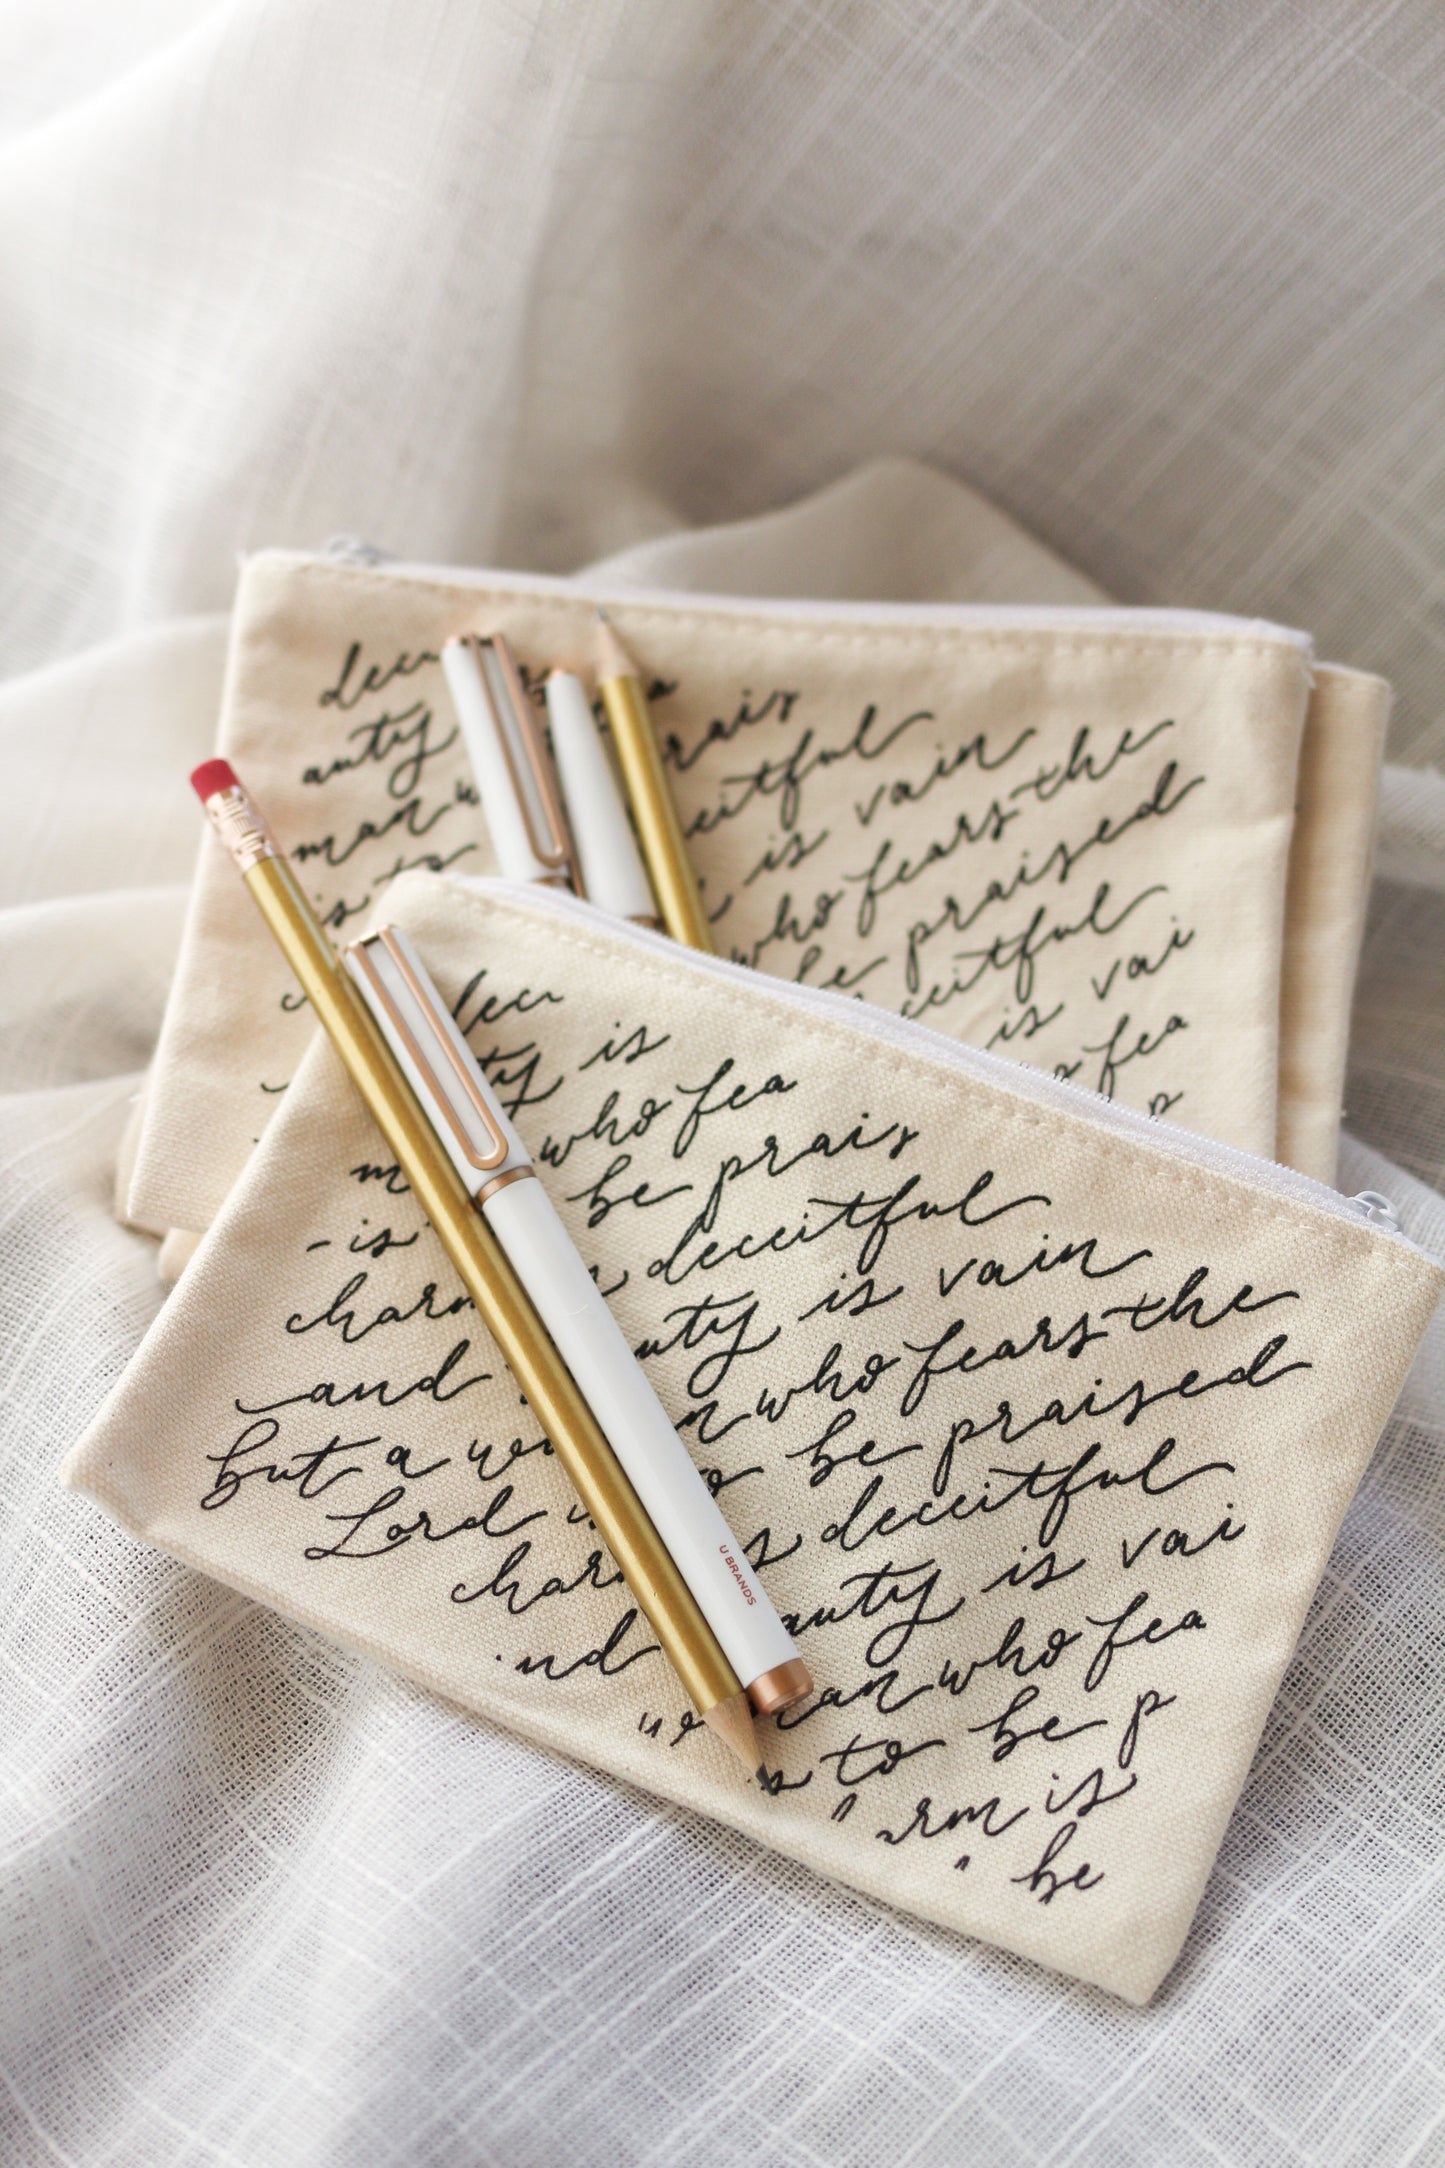 dece
auty
rais
man
ceitful
is to
is vain
who fears the
be praised
ceitful
is vai
fea
p
dec
ty is
who fea
be prais
is
deceitful
charm
uty is vain
and
who fears the
but a
be praised
Lord
deceitful
char
auty is vai
nd
an who fea
to be p
rm is
be
U BRANDS